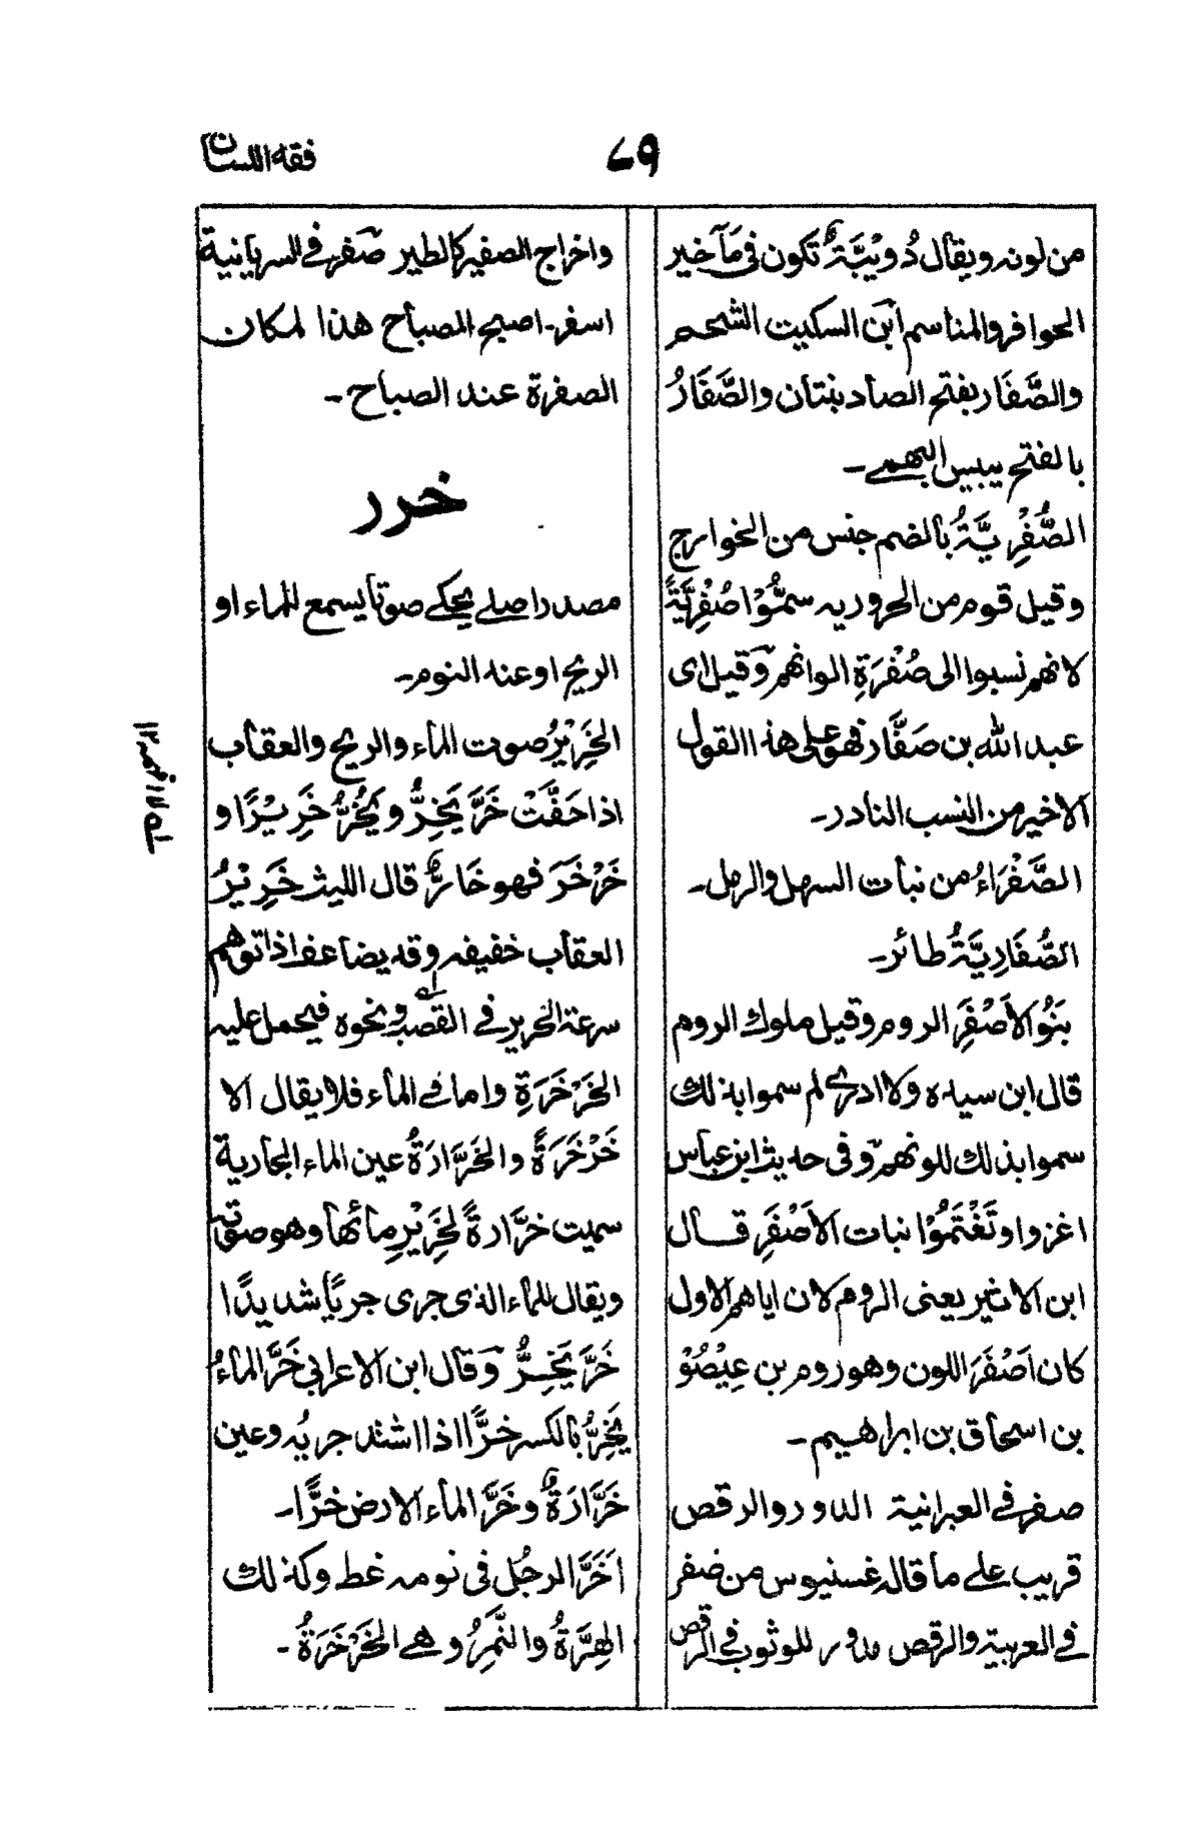 فقه اللسان
٦٩
من لونه ويقال دُوَيْبَّةٌ تكون فى مآخير
الحوافر والمناسم ابن السكيت الشحم
والصَّفَار بفتح الصاد بنتان والصَّفَارُ
بالفتح يبيس البهمے۔
الصُّفْرِيَّةُ بالضم جنس من الخوارج
وقيل قوم من الحروريه سمُّوْا صُفْرِيَّةً
لانهم نسبوا الى صُفْرَةِ الوانهم وقيل اى
عبد الله بن صَفَّار فهو على هذا القول
الاخير من النسب النادر۔
الصَّفْرَاءُ من نبات السهل والرمل۔
الصُّفَارِيَّةُ طائر۔
بَنُو الاَصْفَرِ الروم وقيل ملوك الروم
قال ابن سيده ولا ادرى لم سموا بذلك
سموا بذلك للونهم وفى حديث ابن عباس
اغزوا وتَغْتَمُوْا نبات الاَصْفَرِ قال
ابن الاثير يعنى الروم لان اياهم الاول
كان اَصْفَرَ اللون وهو روم بن عِيْصُوْ
بن اسحاق بن ابراهيم۔
صفر فى العبرانية الداور والرقص
قريب على ما قاله غسنيوس من ضفر
فى العربية والرقص للوثوب فى الرقص
واخراج الصفير كالطير صَفر فى السريانية
اسفر۔ اصبح المصباح هذا لمكان
الصفرة عند الصباح۔
خرر
مصدر اصلے يحكے صوتا يسمع للماء او
الريح او عند النوم۔
الخَرِيْرُ صوت الماء والريح والعقاب
اذا حَفَّتْ خَرَّ يَخِرُّ ويَخُرُّ خَرِيْرًا و
خَرْخَرَ فهو خَارٌّ قال الليث خَرِيْرُ
العقاب خفيفه وقد يضاعف اذا توهم
سرعة الخرير فى القصب ونحوه فيحمل عليه
الخَرْخَرَةِ واما فى الماء فلا يقال الا
خَرْخَرَةً والخَرَّارَةُ عين الماء الجارية
سميت خرَّارةً لخَرِيْرِ مائها وهو صوته
ويقال للماء الذى جرى جريًا شديدًا
خَرَّ يَخِرُّ وقال ابن الاعرابى خَرَّ الماءُ
يَخِرُّ بالكسر خرًّا اذا اشتد جريُه وعين
خَرَّارَةٌ وخَرَّ الماء الارض خرًّا۔
اَخَرَّ الرجُل فى نومه غط وكذلك
الهِرَّةُ والنَّمِرُ وهے الخَرْخَرَةُ۔